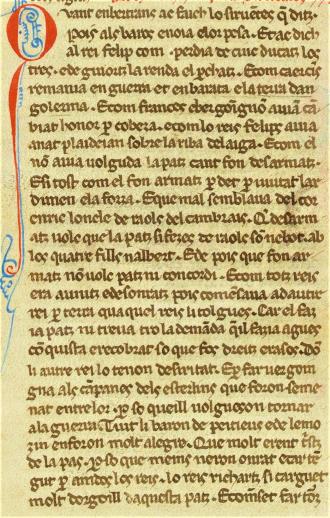 Quant en bertrans ac faich lo siruetes q̃ ditz.
Pois als baros enoia e lor pesa. Et ac dich
al rei felip com perdia de cinc ducatz los
tres. e de gisortz la renda el pchatz. E com caercis
remania en guerra et en barata e la terra dan
golerma. E com frances e bergoignon auian cā
biat honor p cobeza. e com lo reis felips auia
anat plaideian sobre la riba de laiga. E com el
nō auia uolguda la patz cant fon desarmatz.
E si tost com el fon armatz pdet p uiutat lar
dimen e la forsa. E que mal semblaua del cor
enric loncle de raols del cambrais. Q̃ desarm
atz uolc que la patz si fezes de raols so nebot. ab
los quatre fills nalbert. E de pois que fon ar
matz nō uolc patz ni concordi. E com totz reis
era aunitz e desonratz pois comēsaua ad autre
rei p terra qua quel reis li tolgues. Car el faz
ia patz ni treua tro la demāda q̃il fazia agues
cōquista e recobrat so que fos dreitz e rasos. Dō
li autre rei lo tenon desiritat. Ep far uergoin
gna als cāpanes dels esterlins que foron seme
nat entrelor. p so queill uolguēson tornar
a la guerra. Tuit li baron de peitieus e de lemo
zin en foron molt alegre. Que molt erent trist
de la pas. p so que meins neron onrat e car ten
gut p amdos los reis. lo reis richartz si carguet
molt dorgoill daquesta patz. E comset far tortz